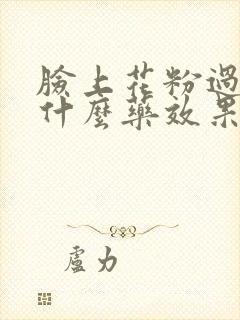 臉上花粉過
什麼藥效果
盧力